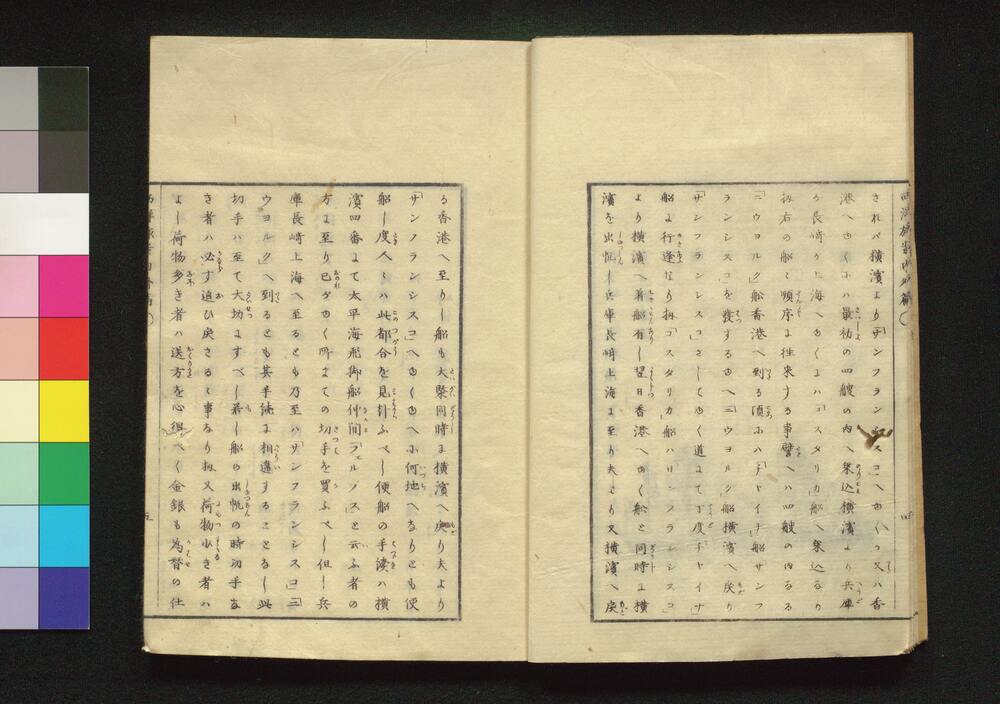 されバ横濱より「サンフランシスコ」へゆくか又ハ香
港へゆくにハ最初の四艘の内へ乗込横濱より兵庫
長崎上海へゆくにハ「コスタリカ」船へ乗込なり
扨右の船々順序に往来する事譬へハ四艘の内なる
「ニウヨルク」舩香港へ到る頃ハ「チャイナ」船サンフ
ランシスコ」を發するゆへ「ニウヨルク」船横濱へ戻り
「サンフランシスコ」さしてゆく道にて丁度「チャイナ」
船に行逢なり扨「コスタリカ」船ハサンフランシスコ」
より横濱へ着船有し翌日香港へゆく舩と同時に横
濱を出帆し兵庫長崎上海に至り夫より又横濱へ戻
る香港へ至りし船も大槩同時に横濱へ戻り夫より
「サンフランシスコ」へゆくゆへ何地へなりとも便
船し度人々ハ此都合を見計ふべし便船の手續ハ横
濱四番にて太平海飛脚船仲間「フェルプス」と云ふ者の
方に至り己がゆく所までの切手を買ふべし但し兵
庫長崎上海へ至るとも乃至ハ「サンフランシスコ」「ニ
ウヨルク」へ到るとも其手續に相違することなし此
切手ハ至て大切にすべし若し船の出帆の時切手な
き者ハ必す追ひ戻さるゝ事なり扨又荷物少き者ハ
よし荷物多き者ハ送方を心得べく金銀も為替の仕
五